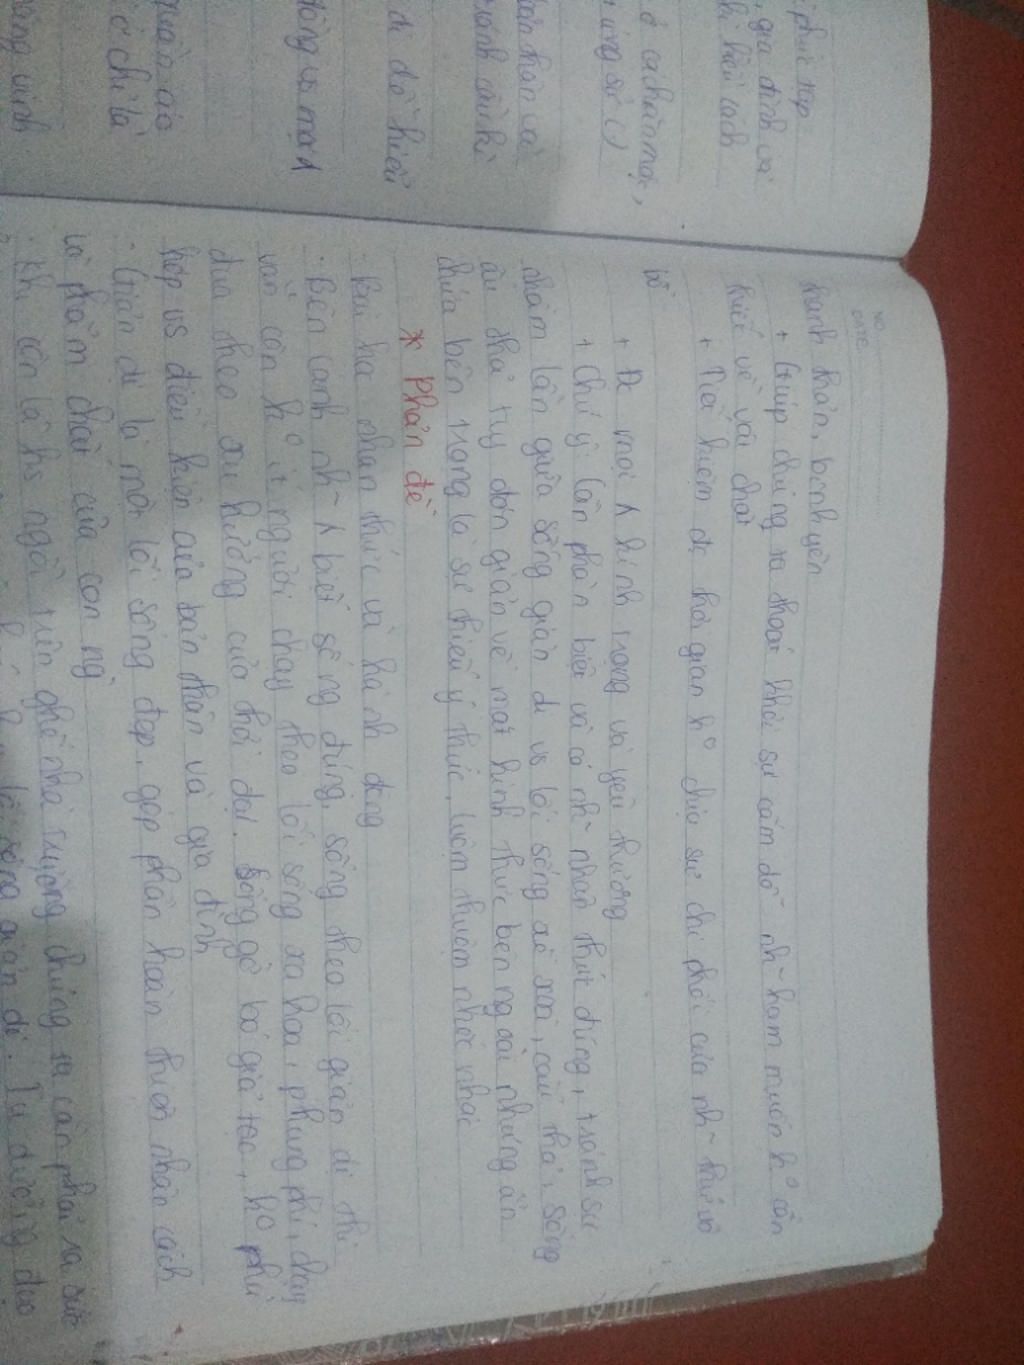 phức tạp
, gia đình và
hiểu cách
cá nhân mới,
ứng sử ()
bản thân và
tránh cầu kì
dị dễ hiểu
đồng vs mọi ʌ
quần áo
chỉ là
NO.
DATE.
thanh thản, bình yên
+ Giúp chúng ta thoát khỏi sự cám dỗ nh~ ham muốn k° cần
thiết về vật chất
+ Tiết kiệm đc thời gian k° chịu sự chi phối của nh~ thứ vô
bổ
+ Đc mọi ʌ kính trọng và yêu thương
+ Chú ý: Cần phân biệt và có nh~ nhận thức đúng, tránh sự
nhầm lẫn giữa sống giản dị vs lối sống xuề xoà, cẩu thả, sống
ẩu thả tuy đơn giản về mặt hình thức bên ngoài nhưng ẩn
chứa bên trong là sự thiếu ý thức, luộm thuộm nhếch nhác
* Phản đề
- Bài học nhận thức và hành động
- Bên cạnh nh~ ʌ biết sống đúng, sống theo lối giản dị thì
vẫn còn k° ít người chạy theo lối sống xa hoa, phung phí, chạy
đua theo xu hướng của thời đại. Sống gò bó giả tạo, k° phù
hợp vs điều kiện của bản thân và gia đình
- Giản dị là một lối sống đẹp, góp phần hoàn thiện nhân cách
và phẩm chất của con ng
- Khi còn là hs ngồi trên ghế nhà trường chúng ta cần phải ra sức
lối sống giản dị. Tu dưỡng đạo